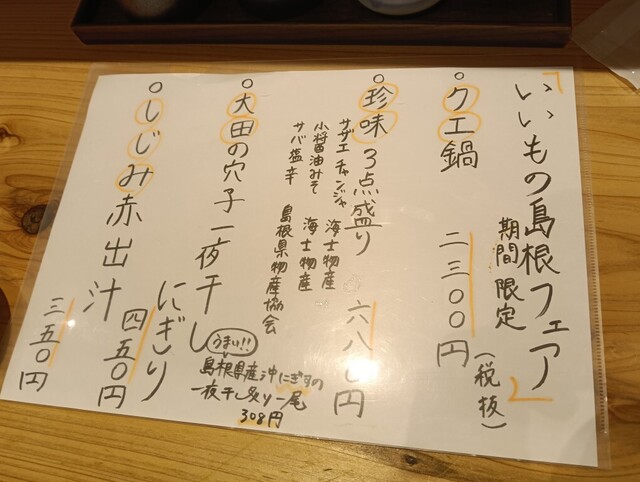 「いいもの島根フェア」
期間限定
（税抜）
○クエ鍋
二三〇〇円
○珍味３点盛り
六八〇円
サザエチャンジャ 海士物産
小醤油みそ 海士物産
サバ塩辛 島根県物産協会
○大田の穴子一夜干しにぎり
四五〇円
うまい!!
島根県産沖にぎすの
一夜干し炙り一尾
308円
○しじみ赤出汁
三五〇円